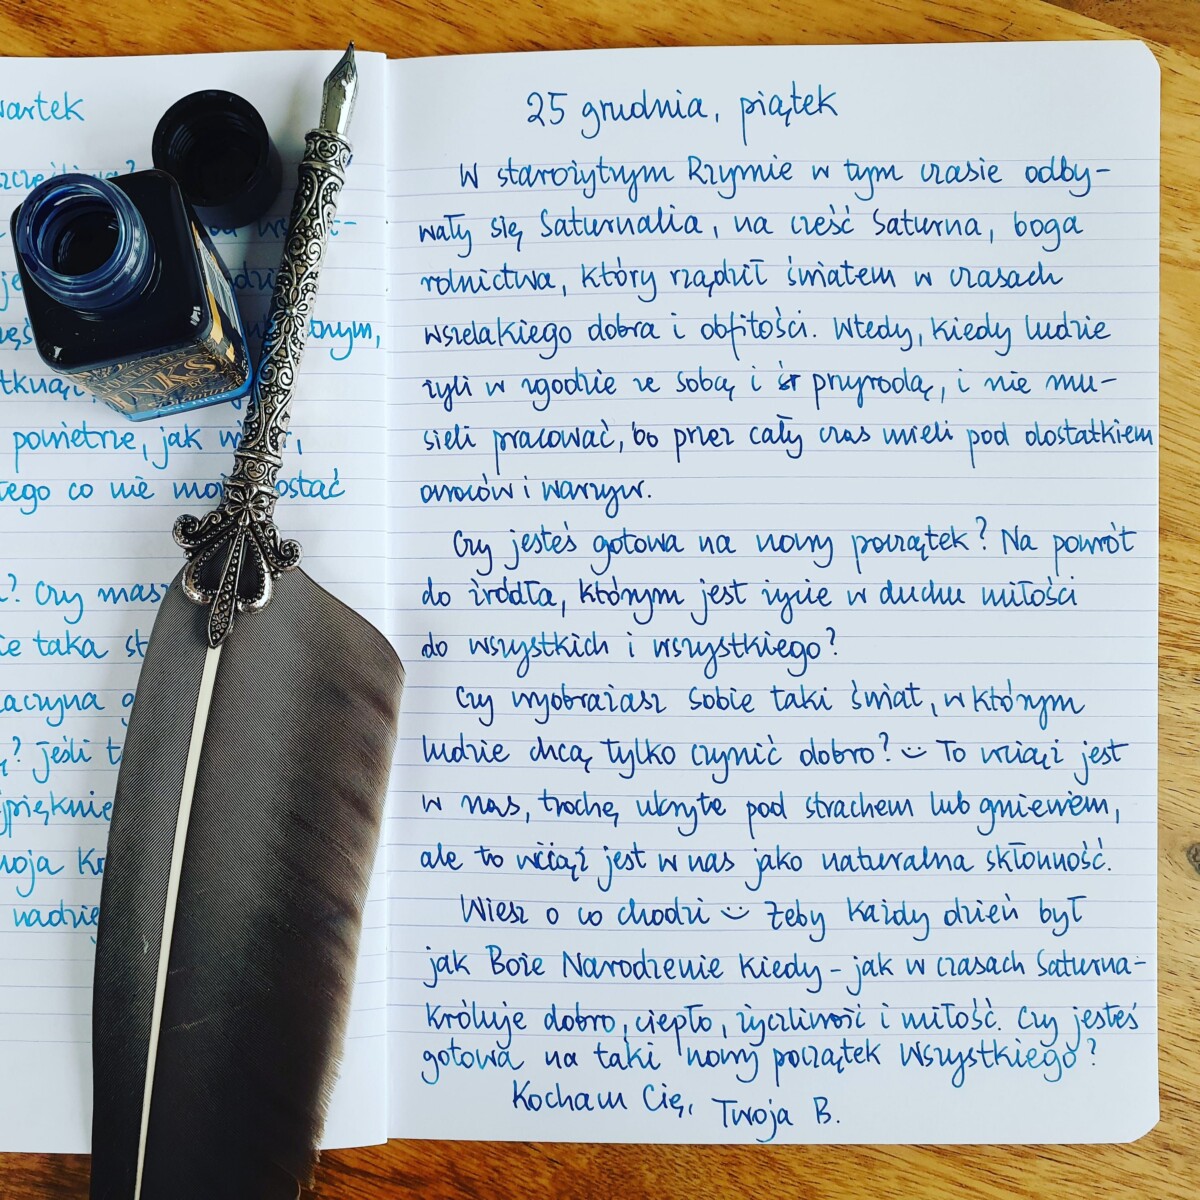 wartek
25 grudnia, piątek
W starożytnym Rzymie w tym czasie odby-
wały się Saturnalia, na cześć Saturna, boga
rolnictwa, który rządził światem w czasach
wszelakiego dobra i obfitości. Wtedy, kiedy ludzie
żyli w zgodzie ze sobą i przyrodą, i nie mu-
sieli pracować, bo przez cały czas mieli pod dostatkiem
owoców i warzyw.
Czy jesteś gotowa na nowy początek? Na powrót
do źródła, którym jest życie w duchu miłości
do wszystkich i wszystkiego?
Czy wyobrażasz sobie taki świat, w którym
ludzie chcą tylko czynić dobro? :) To wciąż jest
w nas, trochę ukryte pod strachem lub gniewem,
ale to wciąż jest w nas jako naturalna skłonność.
Wiesz o co chodzi :) Żeby każdy dzień był
jak Boże Narodzenie kiedy - jak w czasach Saturna -
króluje dobro, ciepło, życzliwość i miłość. Czy jesteś
gotowa na taki nowy początek wszystkiego?
Kocham Cię, Twoja B.
tnym,
powietrze, jak
tego co nie ostać
? Czy masz
ie taka
aczyna
? Jeśli
woja
nadzie
INKS